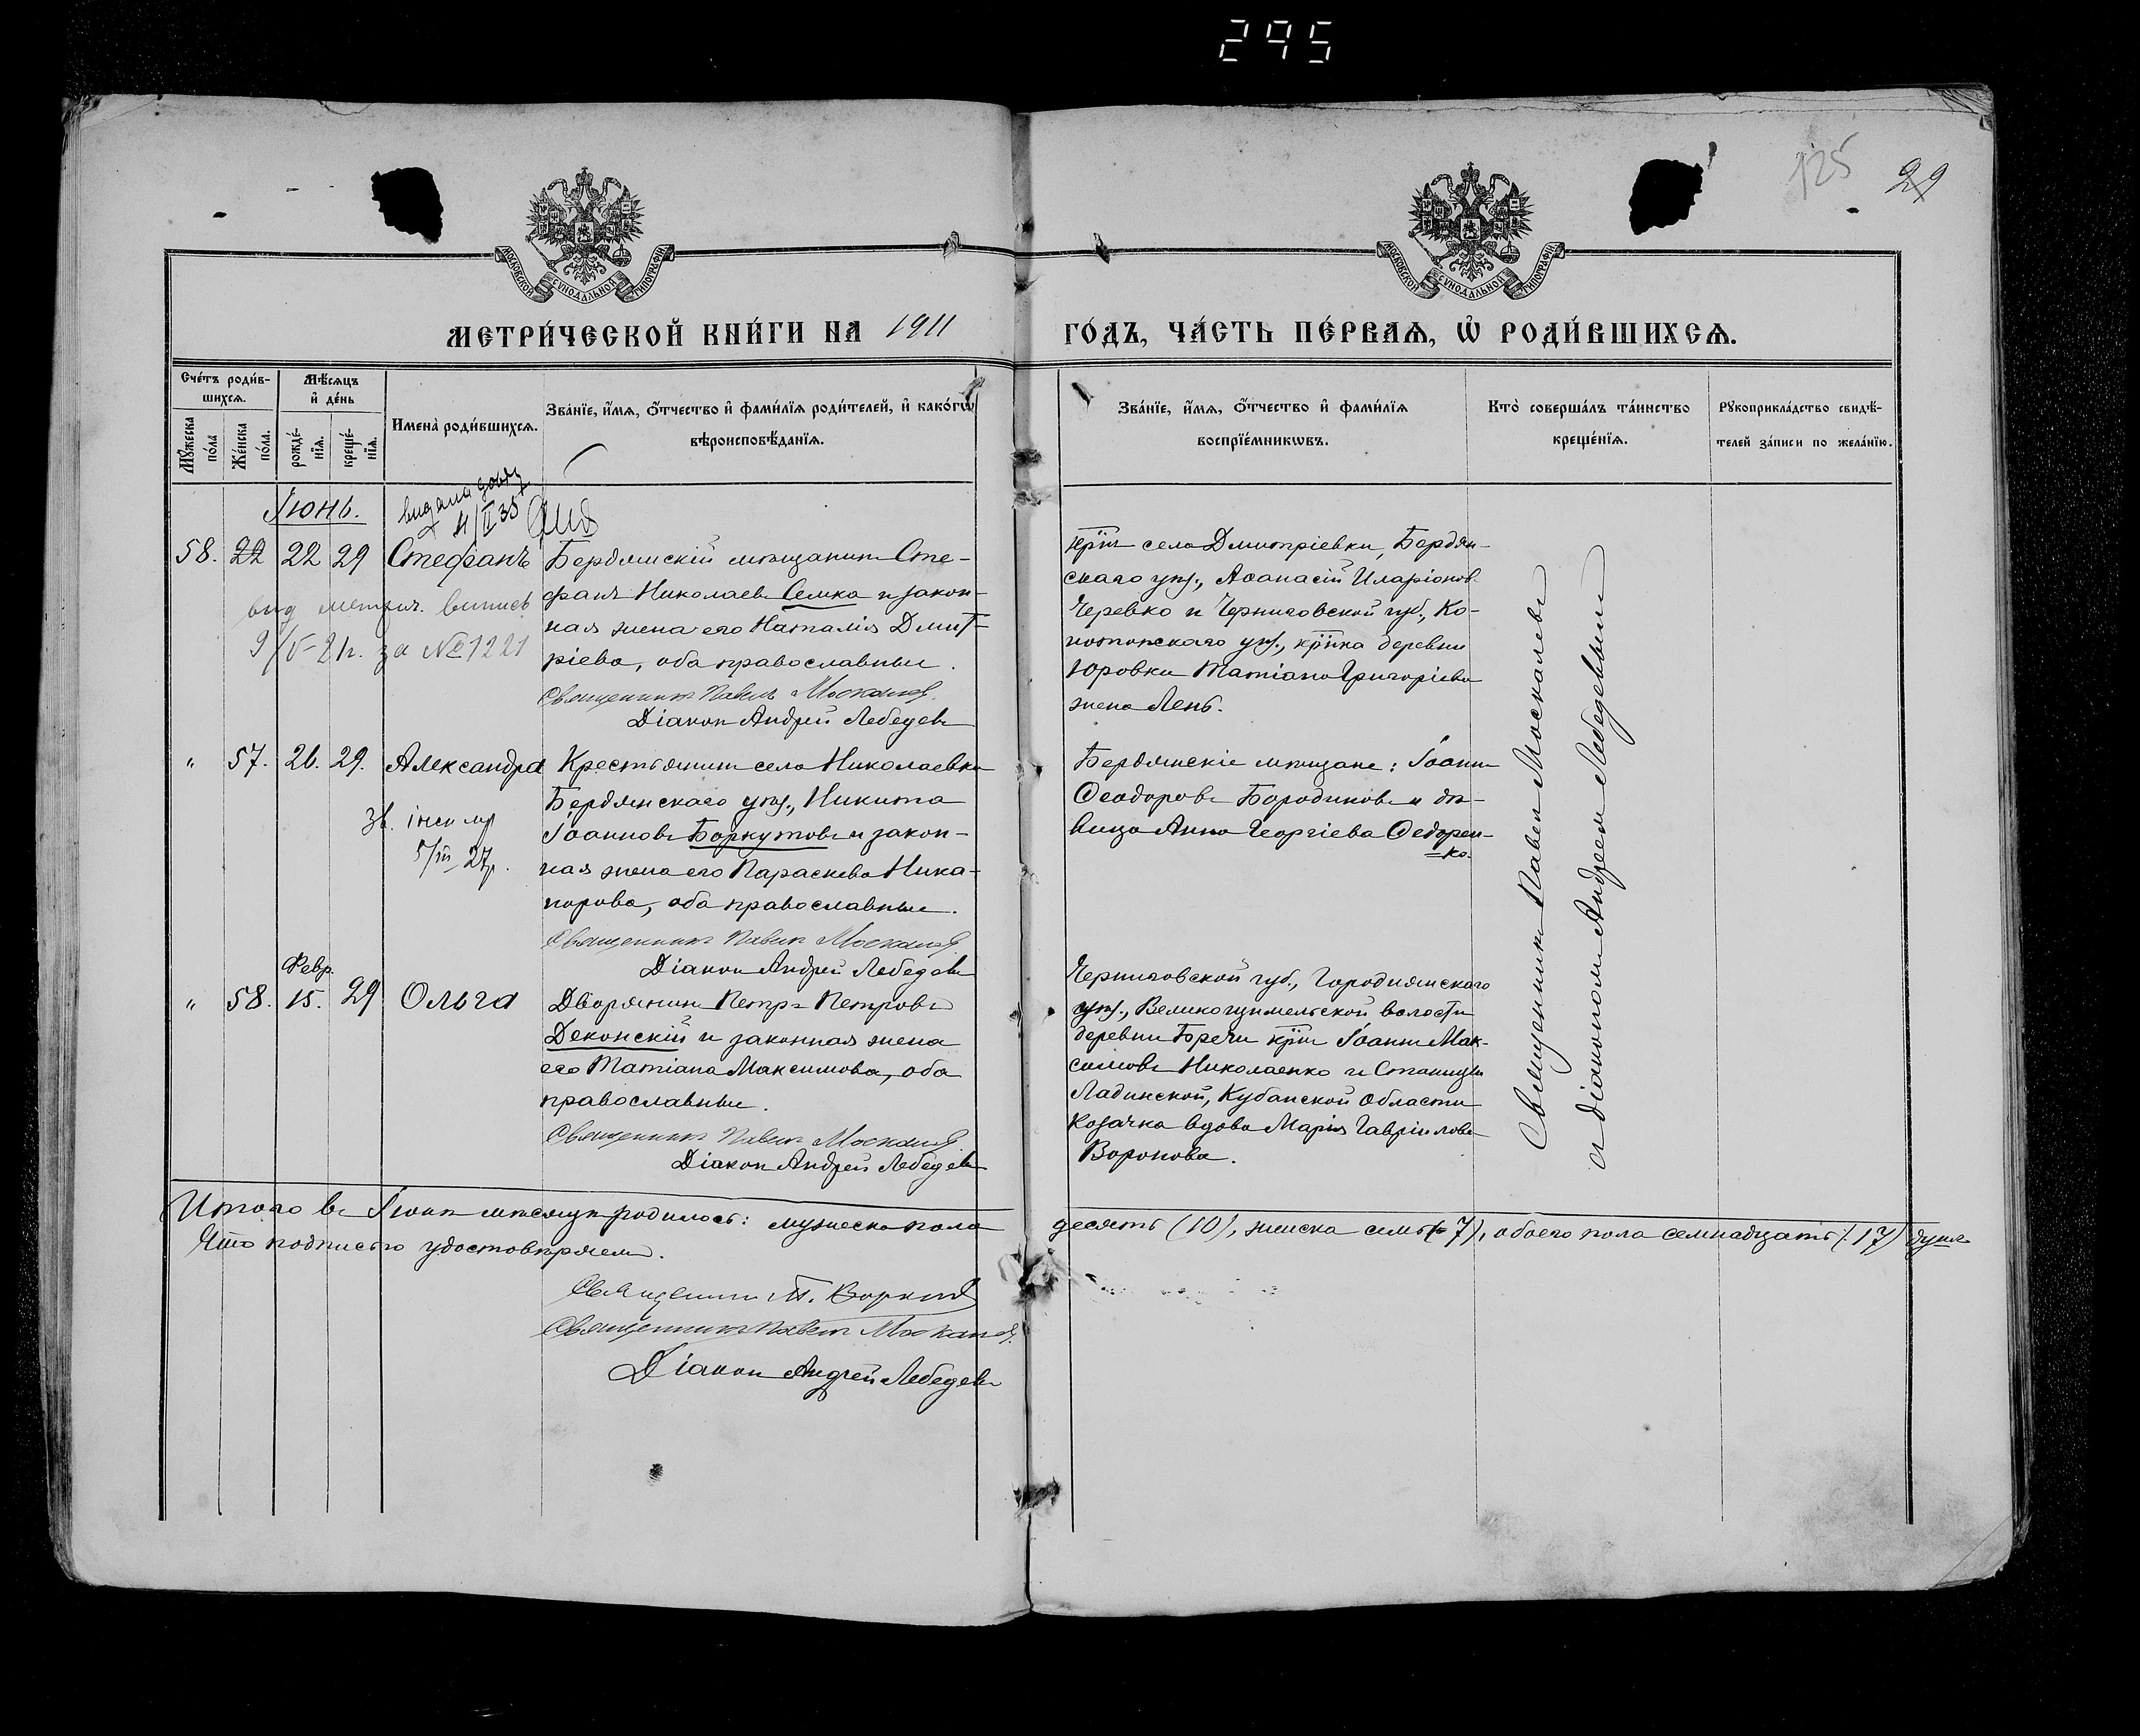 295
125 29
МОСКОВСКОЙ СѴНОДАЛЬНОЙ ТИПОГРАФІИ
МОСКОВСКОЙ СѴНОДАЛЬНОЙ ТИПОГРАФІИ
МЕТРИ́ЧЕСКОЙ КНИ́ГИ НА 1911
ГО́ДЪ, ЧА́СТЬ ПЕ́РВАѦ, Ѡ҆ РОДИ́ВШИХСѦ.
Сче́тъ роди́в-
шихсѧ.
Мꙋ́жеска
по́ла
Же́нска
по́ла.
Мѣ́сѧцъ
и҆ де́нь
рожде́-
нїѧ.
креще́-
нїѧ.
Имена̀ роди́вшихсѧ.
Зва́нїе, и҆́мѧ, ѻ҆́тчество и҆ фами́лїѧ роди́телей, и҆ како́гѡ
вѣроисповѣ́данїѧ.
Зва́нїе, и҆́мѧ, ѻ҆́тчество и҆ фами́лїѧ
воспрїе́мникѡвъ.
Кто̀ соверша́лъ та́инство
креще́нїѧ.
Рꙋкоприкла́дство свидѣ́-
телей за́писи по жела́нїю.
Іюнь.
видана
4/II 35
58. 22 22 29 Стефанъ
Бердянскій мѣщанинъ Сте-
фанъ Николаевъ Семка и закон-
ная жена его Наталія Дмит-
ріева, оба православные.
Священникъ Павелъ Москалевъ
Діаконъ Андрей Лебедевъ
вид метрич. випись
9/V-2 р. за №1221
крнъ села Дмитріевки, Бердян-
скаго уѣз., Аѳанасій Иларіоновъ
Черевко и Черниговской губ., Ко-
нотопскаго уѣз., крнка деревни
Юровки Татіана Григоріева
жена Лень.
" 57. 26. 29. Александра
Крестьянинъ села Николаевки
Бердянскаго уѣз., Никита
Іоанновъ Боркутовъ и закон-
ная жена его Параскева Ника-
норова, оба православные.
Священникъ Павелъ Москалевъ
Діаконъ Андрей Лебедевъ
5/III 27р.
Бердянскіе мѣщане: Іоаннъ
Ѳеодоровъ Бородиновъ и дѣ-
вица Анна Георгіева Федорен-
=ко.
Февр.
" 58. 15. 29 Ольга
Дворянинъ Петръ Петровъ
Деконскій и законная жена
его Татіана Максимова, оба
православные.
Священникъ Павелъ Москалевъ
Діаконъ Андрей Лебедевъ
Черниговской губ., Городнянскаго
уѣз., Великощимельской волости
деревни Бречи крнъ Іоаннъ Мак-
симовъ Николаенко и Станицы
Ладинской, Кубанской области
Козачка вдова Марія Гавріилова
Воронова.
Священникъ Павелъ Москалевъ
и діакономъ Андреемъ Лебедевымъ
Итого въ Іюнѣ мѣсяцѣ родилось: мужеска пола десять (10), женска семь (7), обоего пола семнадцать (17) душъ
Что подписью удостовѣряемъ.
Священникъ
Священникъ Павелъ Москалевъ.
Діаконъ Андрей Лебедевъ